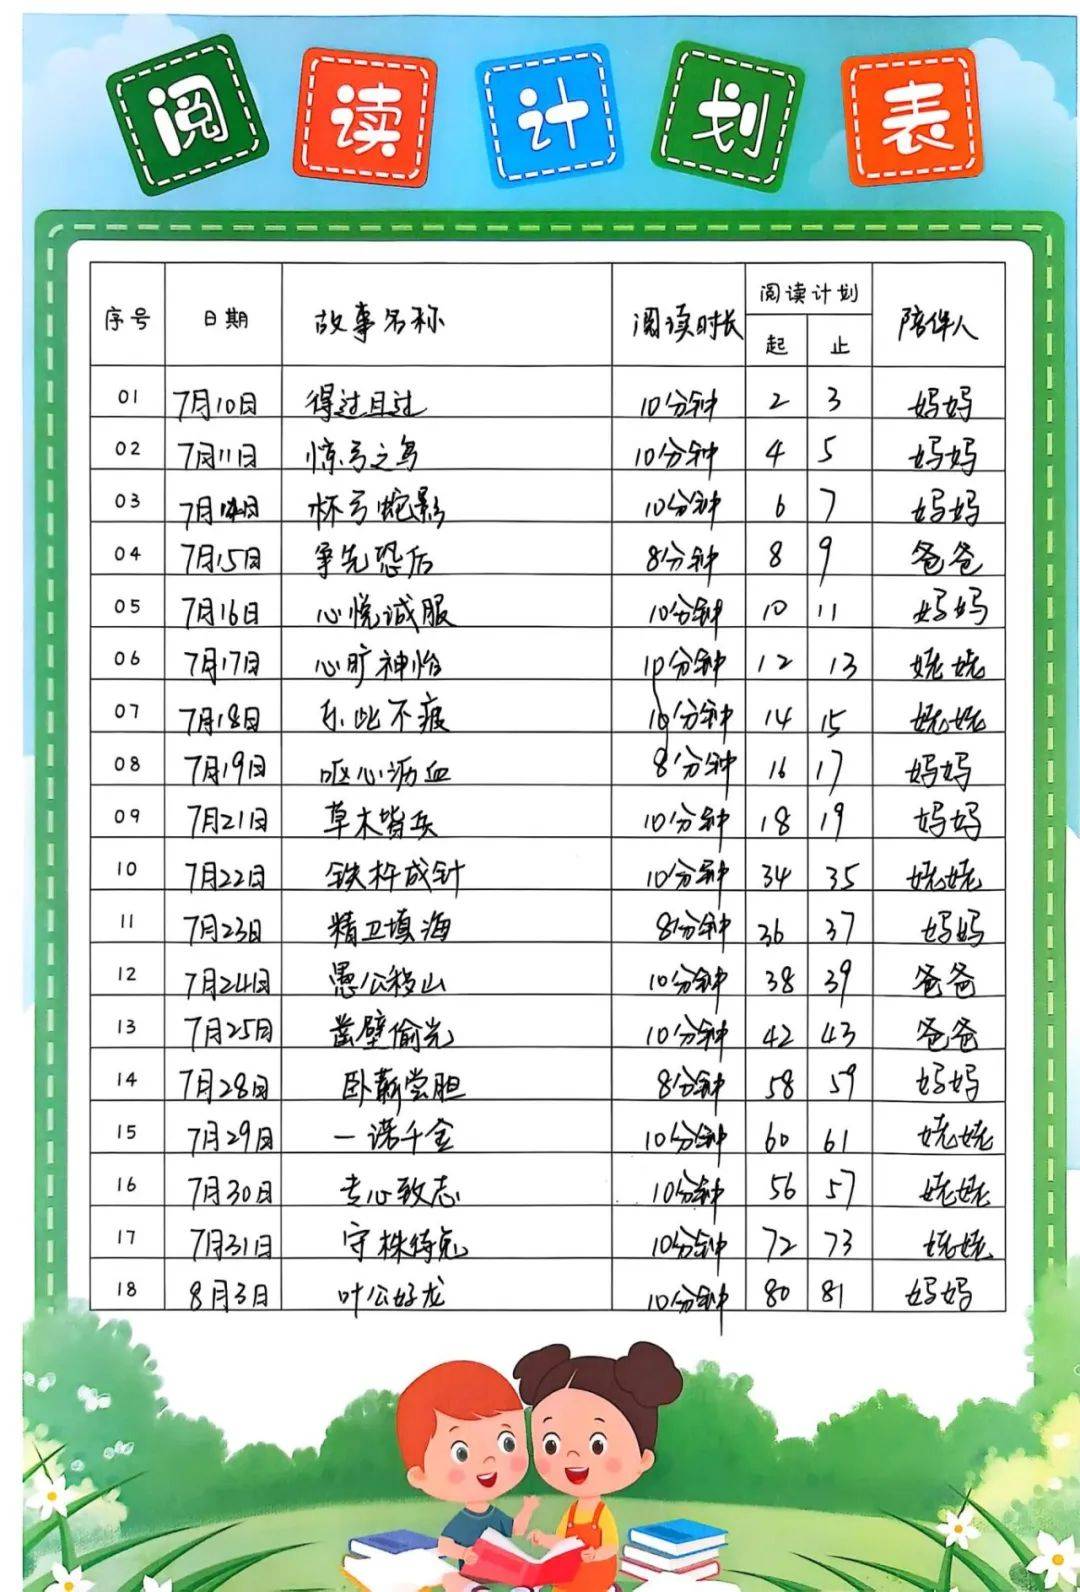 阅读计划表
序号 日期 故事名称 阅读时长 阅读计划 陪伴人
起 止
01 7月10日 得过且过 10分钟 2 3 妈妈
02 7月11日 惊弓之鸟 10分钟 4 5 妈妈
03 7月14日 杯弓蛇影 10分钟 6 7 妈妈
04 7月15日 争先恐后 8分钟 8 9 爸爸
05 7月16日 心悦诚服 10分钟 10 11 妈妈
06 7月17日 心旷神怡 10分钟 12 13 姥姥
07 7月18日 乐此不疲 10分钟 14 15 姥姥
08 7月19日 呕心沥血 8分钟 16 17 妈妈
09 7月21日 草木皆兵 10分钟 18 19 妈妈
10 7月22日 铁杵成针 10分钟 34 35 姥姥
11 7月23日 精卫填海 8分钟 36 37 妈妈
12 7月24日 愚公移山 10分钟 38 39 爸爸
13 7月25日 凿壁偷光 10分钟 42 43 爸爸
14 7月28日 卧薪尝胆 8分钟 58 59 妈妈
15 7月29日 一诺千金 10分钟 60 61 姥姥
16 7月30日 专心致志 10分钟 56 57 姥姥
17 7月31日 守株待兔 10分钟 72 73 姥姥
18 8月3日 叶公好龙 10分钟 80 81 妈妈